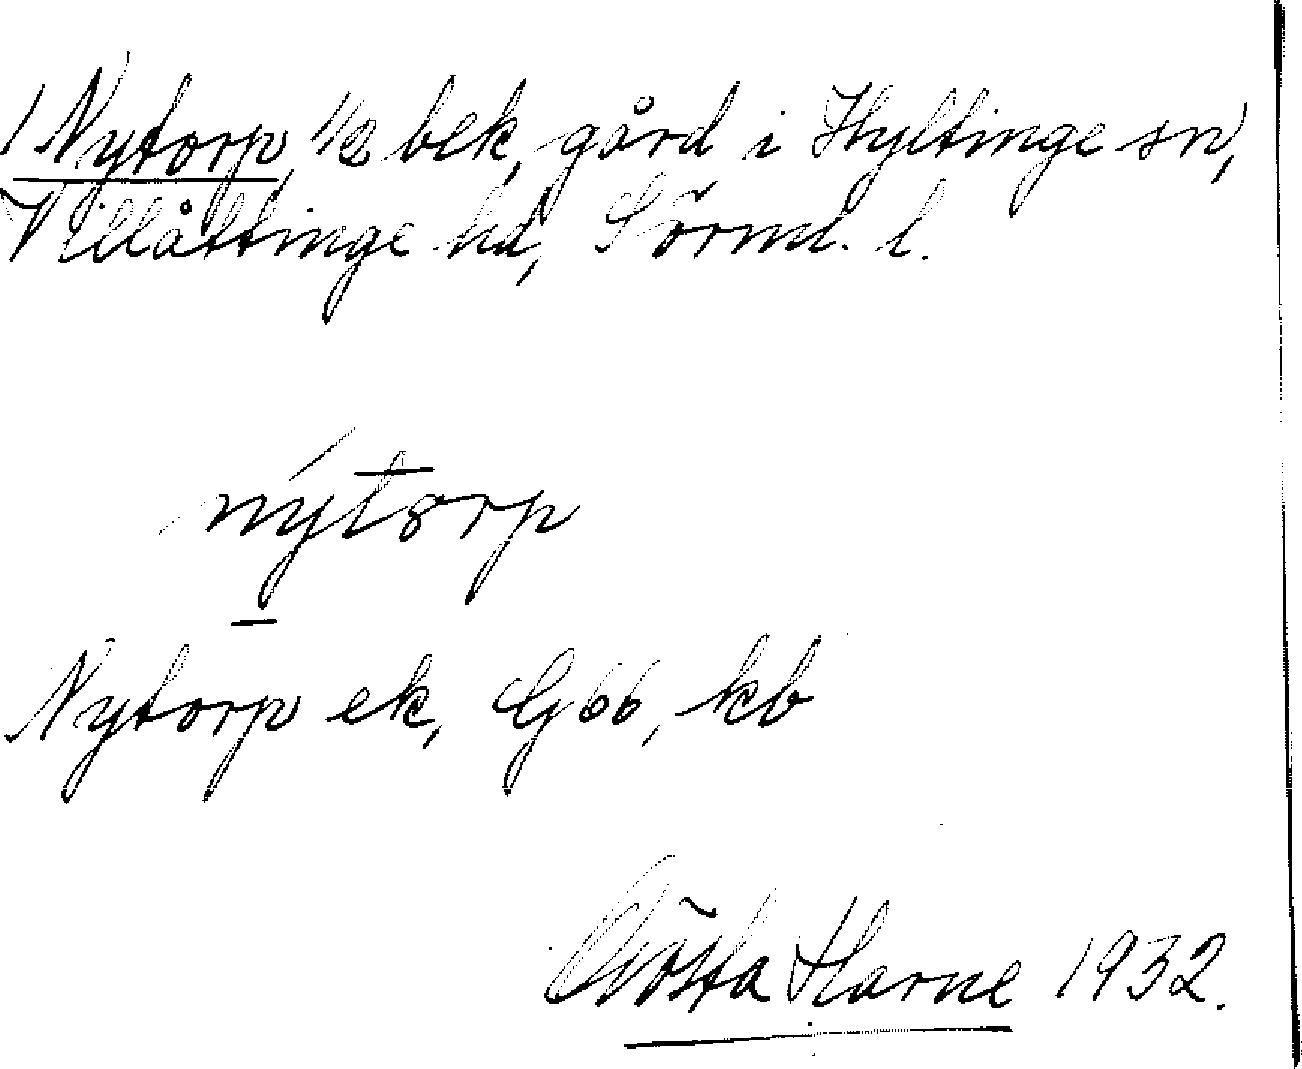 1 Nytorp 1/2 bek, gård i Hyltinge sn,
Villåttinge hd, Sörml. l.
nýtorp
Nytorp ek, G 66, kb
Gösta Harne 1932.